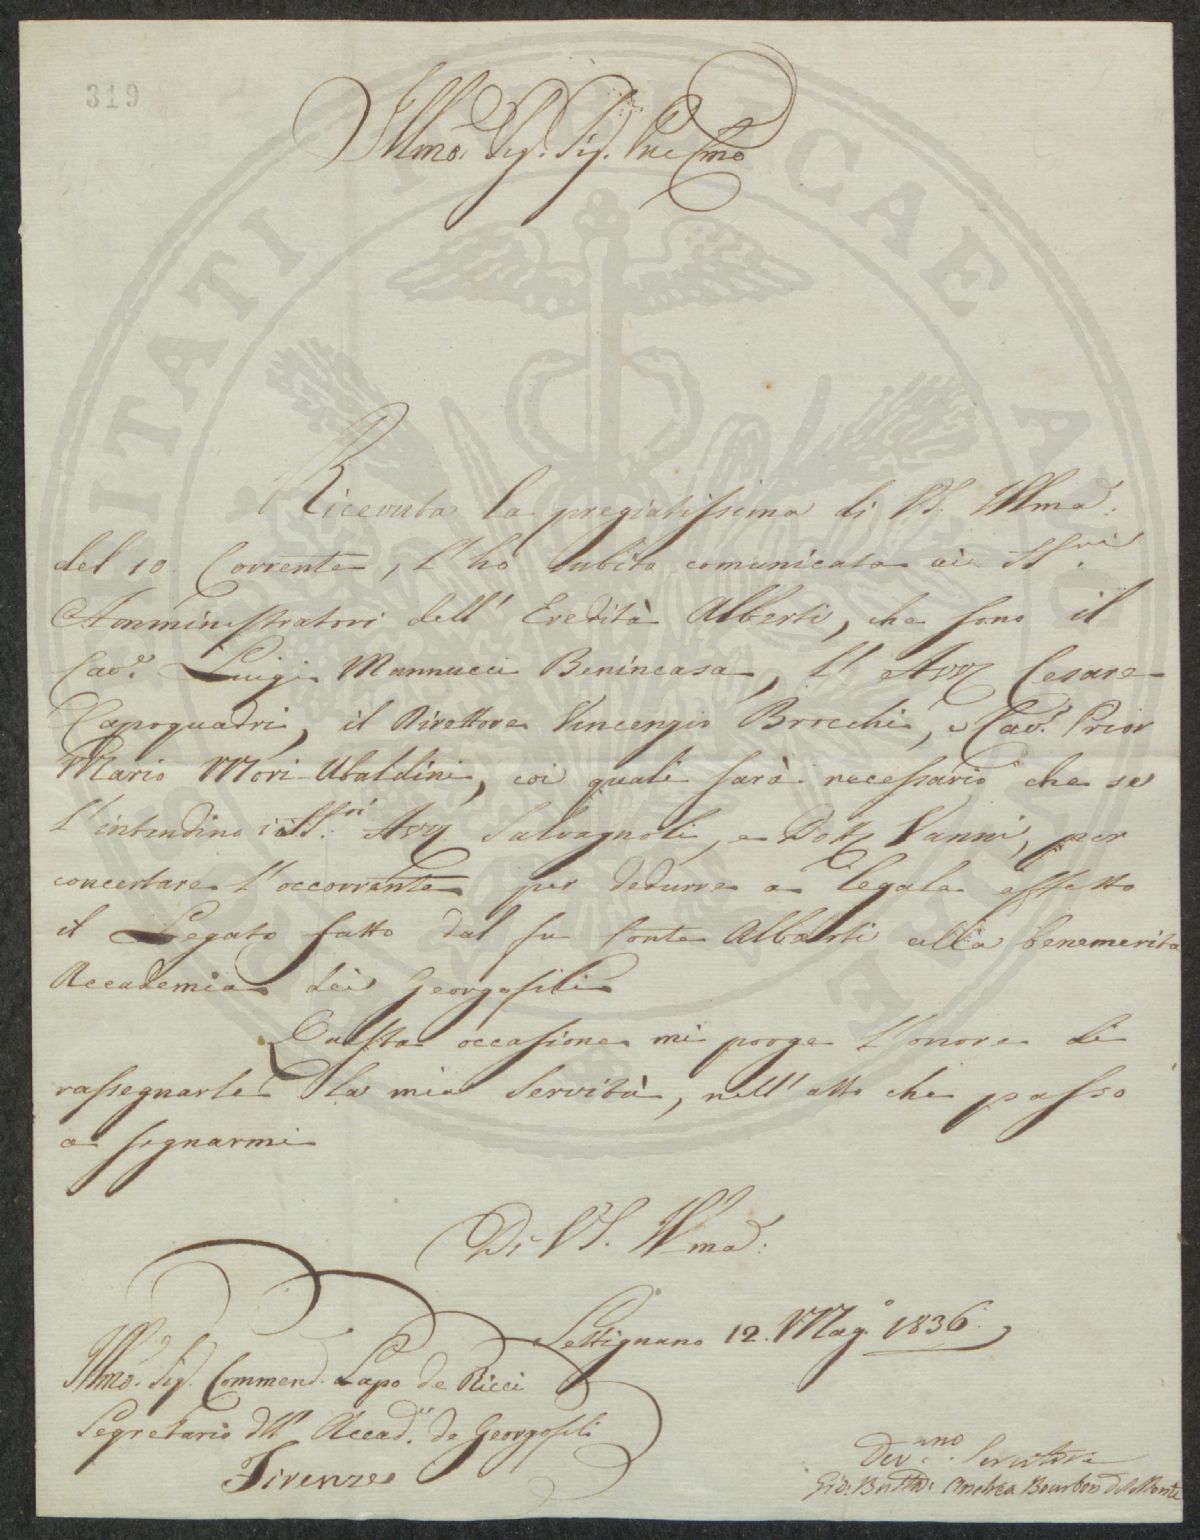 319
Illmo. Sig. Sig. Pne Cmo
Ricevuta la pregiatissima di VS. Illma:
del 10. Corrente, l'ho subito comunicata ai SS.ri
Amministratori dell' Eredità Alberti, che sono il
Cav.e Luigi Mannucci Benincasa, l' Avv. Cesare
Capoquadri, il Direttore Vincenzio Brocchi, e Cav.e Prior
Mario Mori Ubaldini, coi quali sarà necessario che se
l'intendino i SS.ri Avv. Salvagnoli, e Dott. Vanni, per
concertare l'occorrente per dedurre a legale effetto
il Legato fatto dal fu Conte Alberti alla benemerita
Accademia dei Georgofili
Questa occasione mi porge l'onore di
rassegnarle la mia Servitù, nell' atto che passo
a segnarmi
Di VS. Illma:
Settignano 12. Mag.o 1836.
Illmo. Sig. Commend. Lapo de Ricci
Segretario dll' Accad. de Georgofili
Firenze
Dev.mo Servitore
Gio. Batta. Andrea Bourbon del Monte